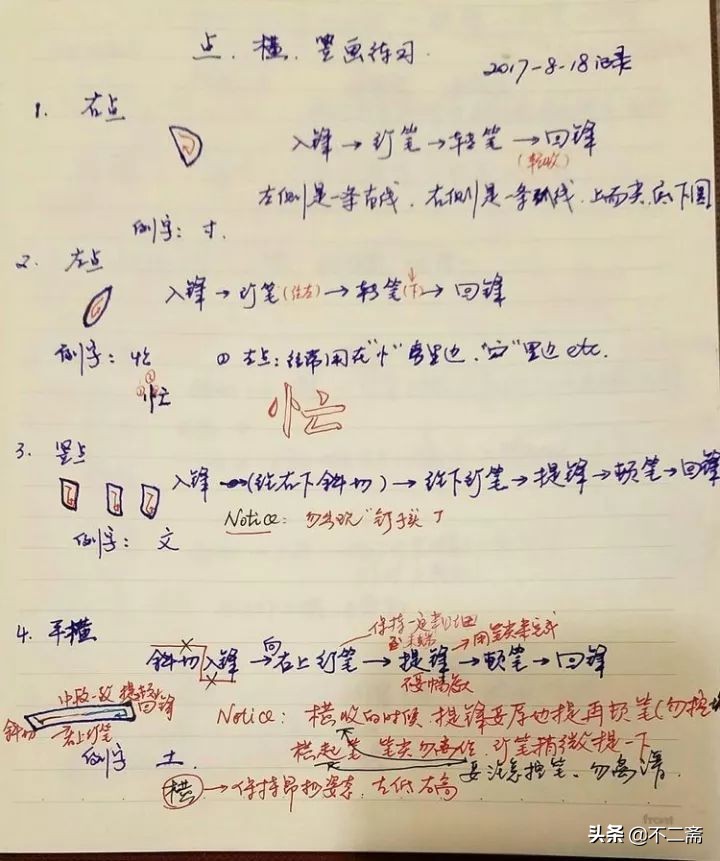 点、横、竖画练习
2017-8-18记录
1. 右点
入锋→行笔→转笔→回锋
(轻收)
左侧是一条直线,右侧是一条弧线,上面尖,底下圆
例字:寸.
2. 左点
入锋→行笔(往左)→转笔(下)→回锋
例字:忙 ① 左点:经常用在"忄"旁里边,"宀"里边etc.
忙
3. 竖点
入锋→(往右下斜切)→往下行笔→提锋→顿笔→回锋
Notice:勿出现"钉子头"了
例字:文
4. 平横
保持一定粗细
用笔尖来完成
斜切入锋→向右上行笔→提锋→顿笔→回锋
中段一致 提顿 回锋
斜切 右上行笔
Notice:横收的时候,提锋要原地提再顿笔
横起笔 笔尖勿 行笔稍微提一下
要注意控笔。勿
例字 土.
横→保持昂扬姿态,左低右高
front
头条 @不二斋